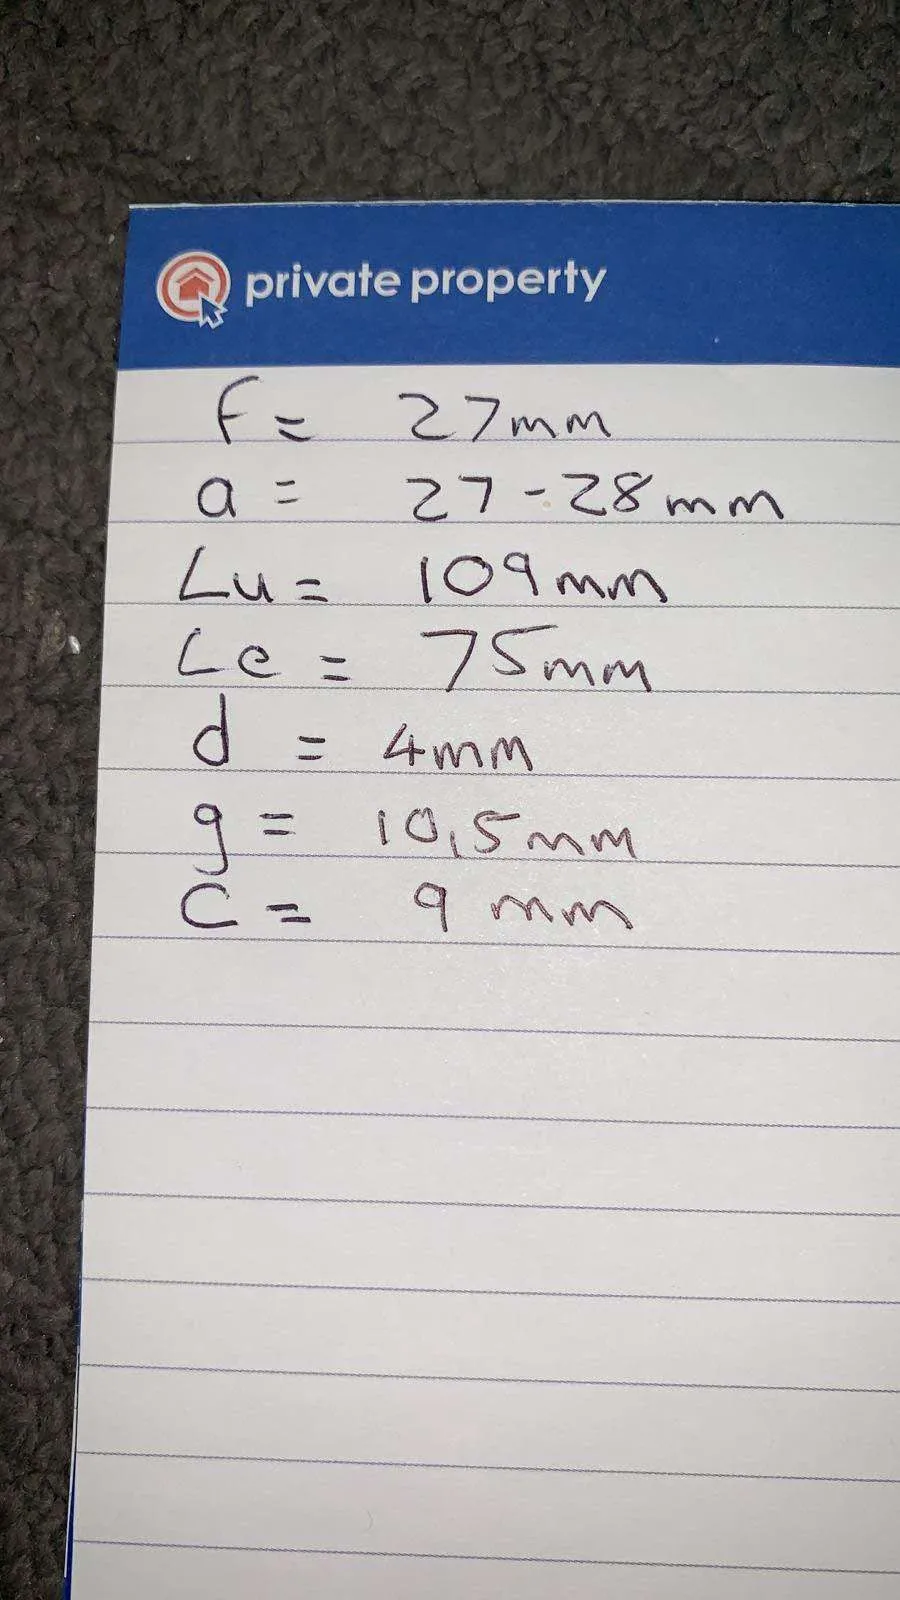 private property
f = 27mm
a = 27-28mm
Lu = 109mm
Le = 75mm
d = 4mm
g = 10,5mm
C = 9 mm